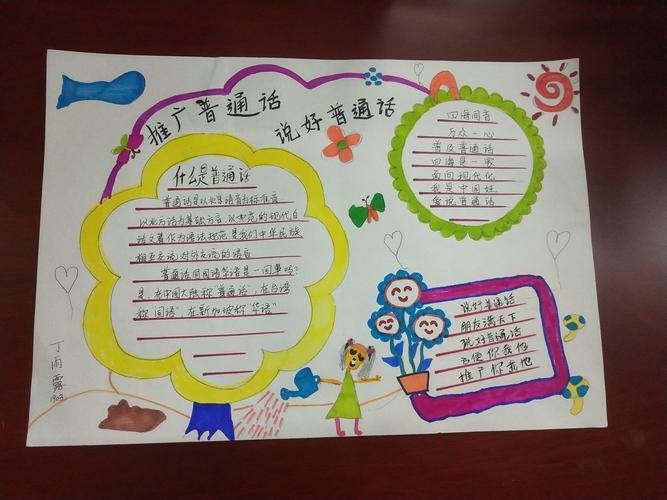 推广普通话
说好普通话
什么是普通话
普通话是以北京语音为标准音
以北方话为基础方言,以典范的现代白
话文著作为语法规范,是我们中华民族
相互交流对外交流的语音
普通话同国语华语是一回事吗?
是,在中国大陆称"普通话",在台湾
称"国语"在新加坡称"华语"
四海同音
万众一心
普及普通话
四海是一家
面向现代化
我是中国娃
爱说普通话
说好普通话
朋友满天下
说好普通话
方便你我他
推广你我他
丁雨露
1903